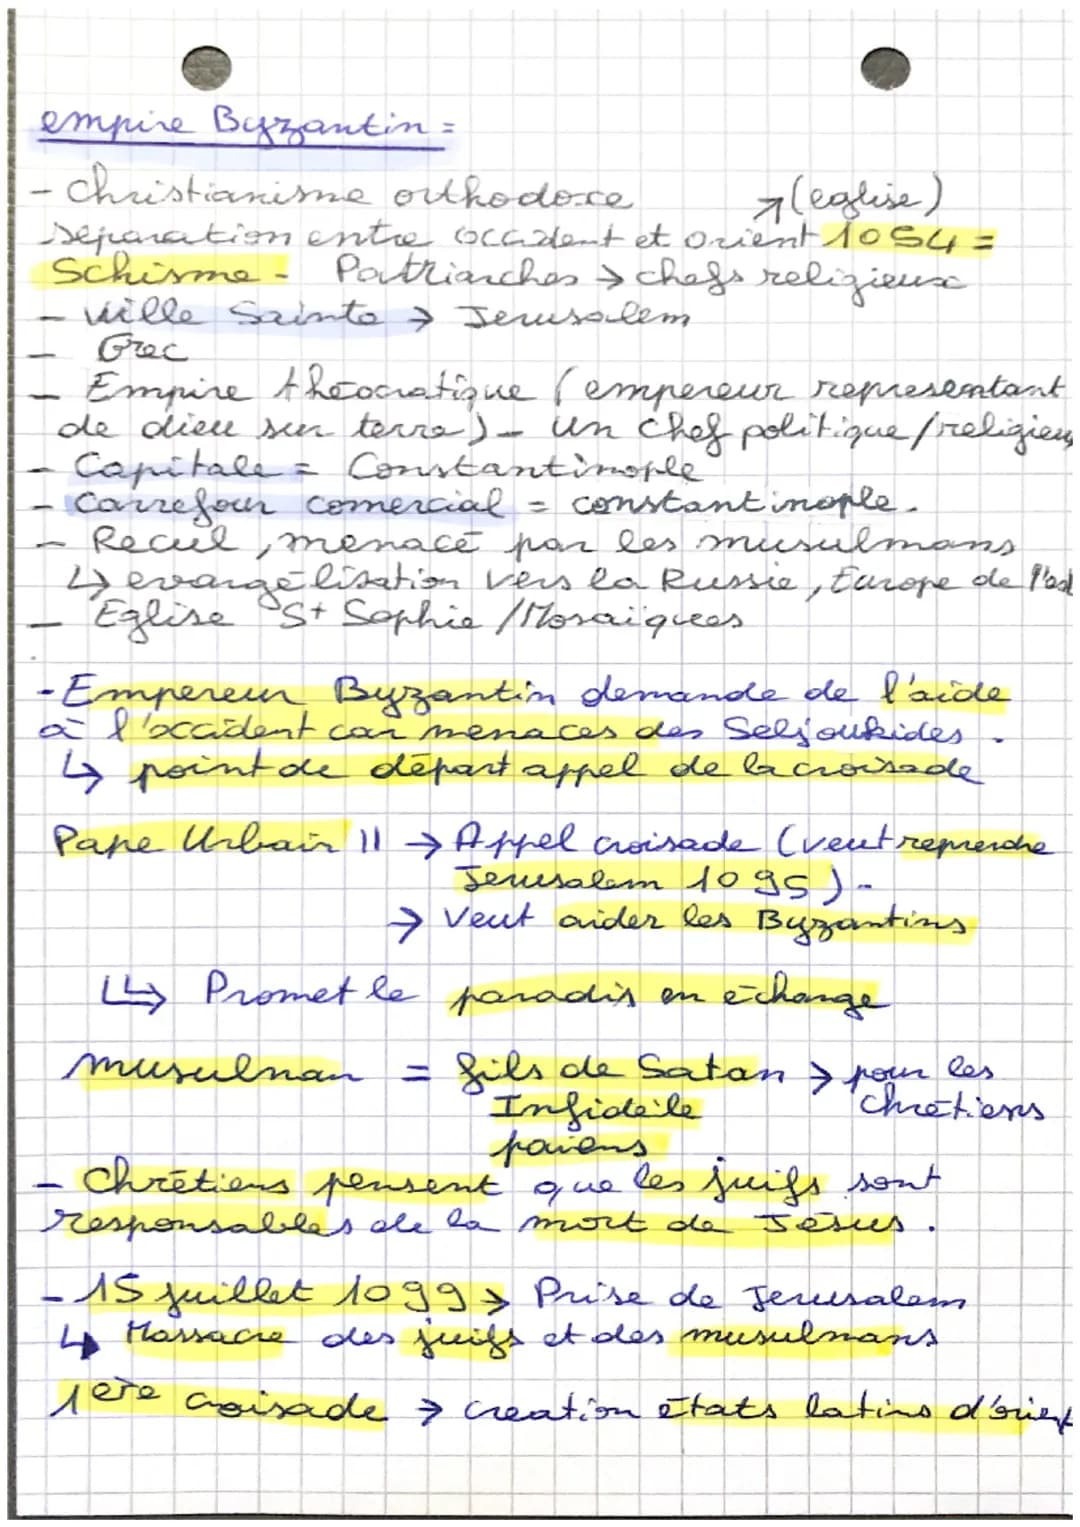 empire Byzantin =
- Christianisme orthodoxe ↗(eglise)
separation entre occident et orient 1054 =
Schisme - Patriarches → chefs religieux
- ville Sainte → Jerusalem
- Grec
- Empire théocratique (empereur representant
de dieu sur terre) - un chef politique/religieux
- Capitale = Constantinople
- Carrefour comercial = constantinople.
- Recul, menacé par les musulmans
↳ evangélisation vers la Russie, Europe de l'est
- Eglise St Sophie / Mosaïques
- Empereur Byzantin demande de l'aide
à l'occident car menaces des Seljoukides.
↳ point de départ appel de la croisade
Pape Urbain II → Appel croisade (veut reprendre
Jerusalem 1095) -
→ Veut aider les Byzantins
↳ Promet le paradis en échange
musulman = fils de Satan → pour les
Infidèle chrétiens
paiens
- Chrétiens pensent que les juifs sont
responsables de la mort de Jésus.
- 15 juillet 1099 → Prise de Jerusalem
↳ Massacre des juifs et des musulmans
1ere croisade → creation états latins d'orient